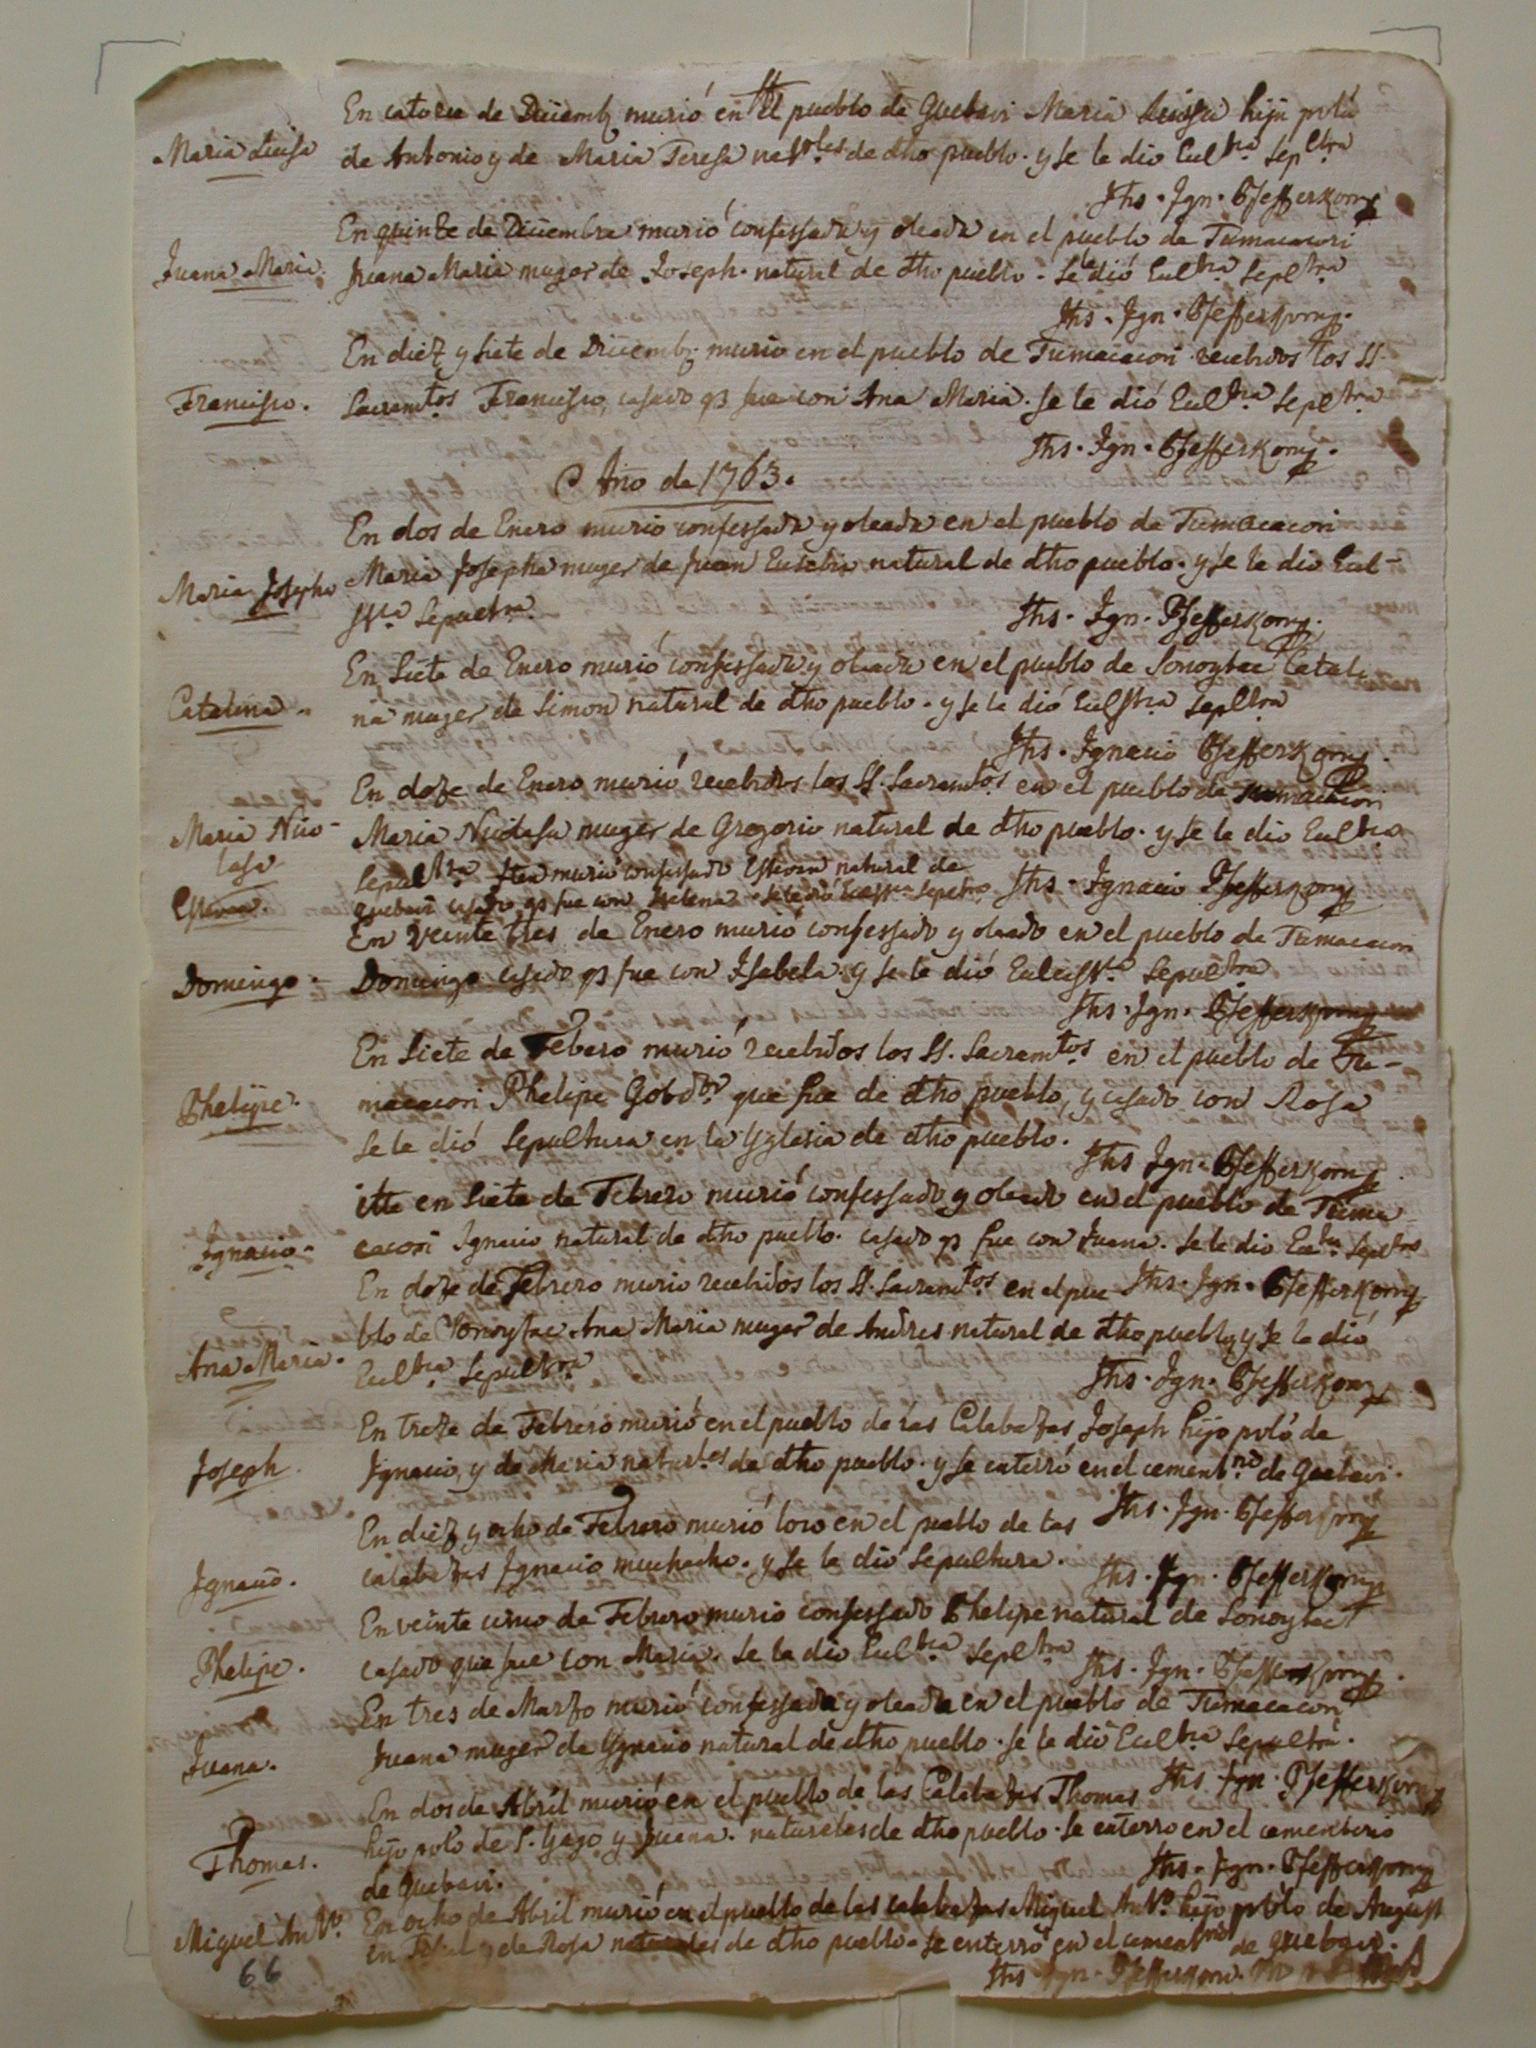 En catorze de Diciemb. murió en el pueblo de Guebavi Maria Luisa hija polú
Maria Luisa
de Antonio y de Maria Teresa natles de dho pueblo. y se le dio Eultica sepltra
Jhs. Ign. Pfefferkorn
En quinze de Diciembre murió confessada y oleada en el pueblo de Tumacacori
Juana Maria.
Juana Maria muger de Joseph. natural de dho pueblo. se le dió Eultica sepltra
Jhs. Ign. Pfefferkorn.
En diez y siete de Diciemb. murio en el pueblo de Tumacacori recebidos los SS.
Francisco.
Sacramtos Francisco, casado q fue con Ana Maria. se le dió Eultica sepltra
Jhs. Ign. Pfefferkorn.
Año de 1763.
En dos de Enero murio confessada y oleada en el pueblo de Tumacacori
Maria Josepha
Maria Josepha muger de Juan Eusebio natural de dho pueblo. y se le dio Eul-
stca sepueltra.
Jhs. Ign. Pfefferkorn.
En siete de Enero murió confessada y oleada en el pueblo de Sonoytac Catali
Catalina.
na muger de Simon natural de dho pueblo. y se le dió Eulstica sepltra
Jhs. Ignacio Pfefferkorn.
En doze de Enero murió recebidos los SS. Sacramtos en el pueblo de Tumacacori
Maria Nico-
lasa
Maria Nicolasa muger de Gregorio natural de dho pueblo. y se le dio Eultica
sepultra Iten murió confessado Estevan natural de
Estevan.
Guebavi casado q fue con Helena. se le dió Eclesstca Sepultra
Jhs. Ignacio Pfefferkorn
En veinte tres de Enero murió confessado y oleado en el pueblo de Tumacacori
Domingo.
Domingo casado q fue con Isabela. y se le dió Eulesstca Sepueltra.
Jhs. Ign. Pfefferkorn
En siete de Febero murió recebidos los SS. Sacramtos en el pueblo de Tu-
Phelipe.
macacori Phelipe Gobdor que fue de dho pueblo, y casado con Rosa
se le dió sepultura en la Yglesia de dho pueblo.
Jhs Ign. Pfefferkorn.
itte en siete de Febrero murió confessado y oleado en el pueblo de Tuma
Ignacio.
cacori Ignacio natural de dho pueblo. casado q fue con Juana. se le dio Ectca sepltra
En doze de Febrero murio recebidos los SS. Sacramtos en el pue
Jhs. Ign. Pfefferkorn
blo de Sonoytac Ana Maria muger de Andres natural de dho pueblo y se le dió
Ana Maria.
Eultica sepultra
Jhs. Ign. Pfefferkorn
En treze de Febrero murió en el pueblo de las Calabazas Joseph hijo poló de
Joseph.
Ignacio, y de Maria naturles de dho pueblo. y se enterró en el cementrio de Guebavi.
Jhs. Ign. Pfefferkorn
En diez y ocho de Febrero murió loco en el pueblo de las
Ignacio.
calabazas Ignacio muchacho. y se le dió sepultura.
Jhs. Ign. Pfefferkorn
En veinte cinco de Febrero murió confessado Phelipe natural de Sonoytac
Phelipe.
casado que fue con Maria. se le dio Eultica sepltra
Jhs. Ign. Pfefferkorn.
En tres de Marzo murió confessada y oleada en el pueblo de Tumacacori
Juana.
Juana muger de Ygnacio natural de dho pueblo. se le dió Eultica sepultra.
Jhs. Ign. Pfefferkorn
En dos de Abril murió en el pueblo de las Calabazas Thomas
Thomas.
hijo poló de S. Yago y Juana. naturales de dho pueblo. se enterro en el cementerio
de Guebavi.
Jhs. Ign. Pfefferkorn
En ocho de Abril murió en el pueblo de las calabazas Miguel Anto. hijo poló de August
Miguel Anto.
in y de Rosa naturales de dho pueblo. se enterró en el cementrio de Guebavi.
Jhs Ign. Pfefferkorn.
66